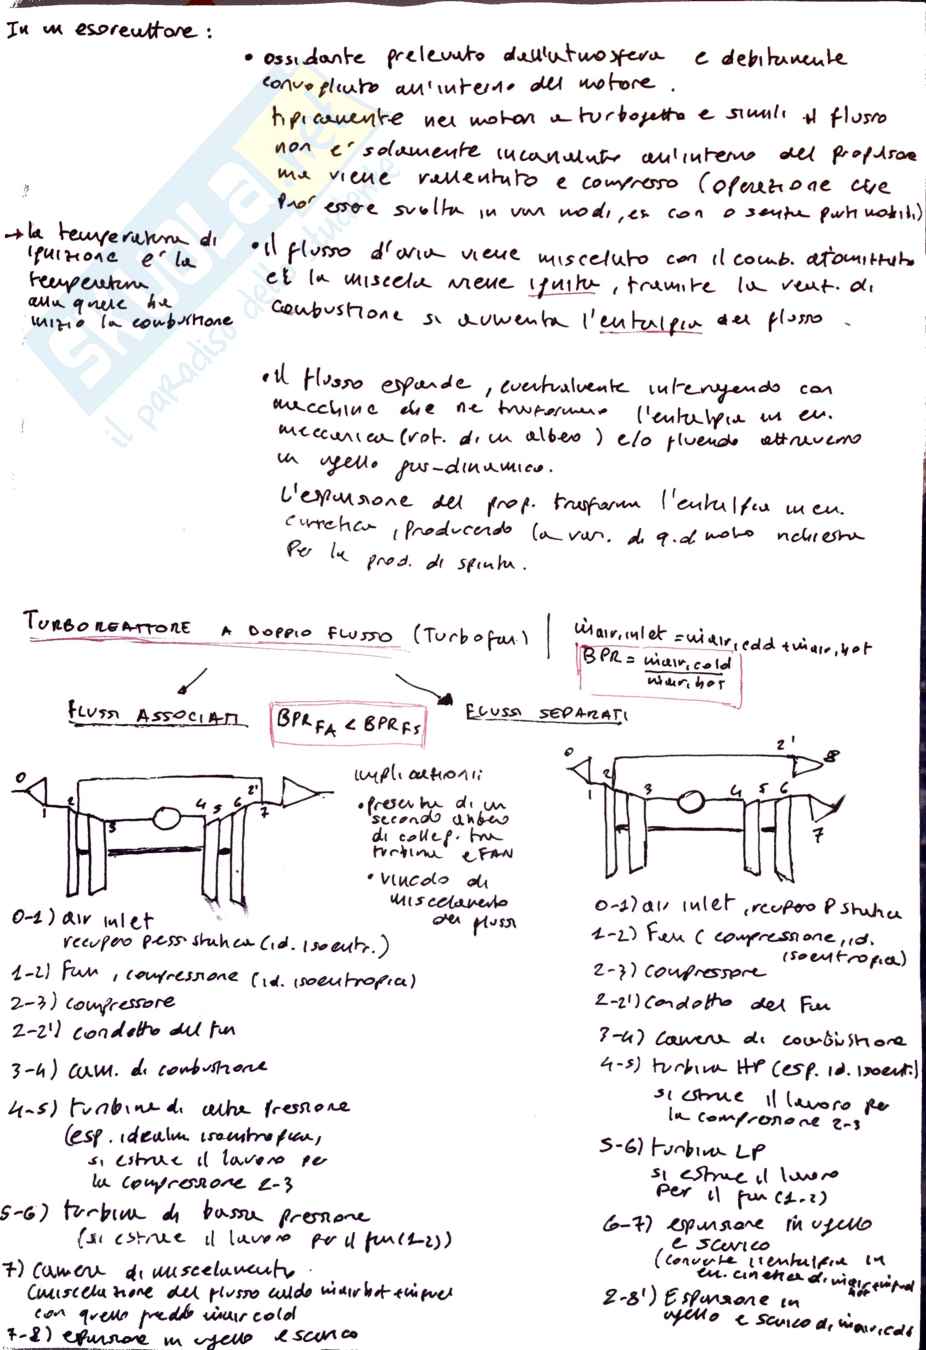 In un esoreattore :
• ossidante prelevato dall'atmosfera e debitamente
convogliato all'interno del motore .
tipicamente nei motori a turbogetto e simili il flusso
non e' solamente incanalato all'interno del propulsore
ma viene rallentato e compresso (operazione che
può essere svolta in vari modi, es con o senza parti mobili)
→ la temperatura di
ignizione e' la
temperatura
alla quale ha
inizio la combustione
• il flusso d'aria viene miscelato con il comb. atomizzato
et la miscela viene ignita , tramite la reat. di
combustione si aumenta l'entalpia del flusso .
• il flusso espande , eventualmente interagendo con
macchine che ne trasformano l'entalpia in en.
meccanica (rot. di un albero ) e/o fluendo attraverso
un ugello gas-dinamico.
L'espansione del prop. trasforma l'entalpia in en.
cinetica , producendo la var. di q.d moto richiesta
per la prod. di spinta .
TURBOREATTORE A DOPPIO FLUSSO (Turbofan)
ṁair,inlet = ṁair,cold + ṁair,hot
BPR = ṁair,cold
ṁair,hot
FLUSSI ASSOCIATI
BPR FA < BPR FS
FLUSSI SEPARATI
0 1 2 3 4 5 6 2' 7
implicazioni:
• presenza di un
secondo albero
di colleg. tra
turbina e FAN
• vincolo di
miscelamento
dei flussi
0 1 2 3 4 5 6 2' 8 7
0-1) air inlet
recupero press statica (id. isoentr.)
1-2) Fan , compressione (id. isoentropica)
2-3) compressore
2-2') condotto del fan
3-4) cam. di combustione
4-5) turbina di alta pressione
(esp. idealm isoentropica,
si estrae il lavoro per
la compressione 2-3
5-6) turbina di bassa pressione
(si estrae il lavoro per il fan (1-2))
7) camera di miscelamento .
(miscelazione del flusso caldo ṁair hot + ṁfuel
con quello freddo ṁair cold
7-8) espansione in ugello e scarico
0-1) air inlet , recupero P statica
1-2) Fan ( compressione, id.
isoentropica)
2-3) compressore
2-2') condotto del Fan
3-4) camera di combustione
4-5) turbina HP (esp. id. isoentr.)
si estrae il lavoro per
la compressione 2-3
5-6) turbina LP
si estrae il lavoro
per il fan (1-2)
6-7) espansione in ugello
e scarico
(converte l'entalpia in
en. cinetica di ṁair hot + ṁfuel
2-8') Espansione in
ugello e scarico di ṁair,cold
SKUOLA.net
il paradiso dello studente